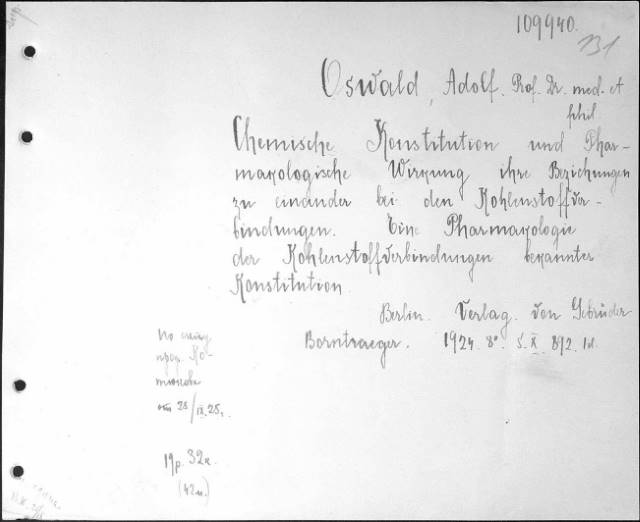 109940.
131
Oswald, Adolf. Prof. Dr. med. et
phil
Chemische Konstitution und Phar-
makologische Wirkung ihre Beziehungen
zu einander bei den Kohlenstoffver-
bindungen. Eine Pharmakologie
der Kohlenstoffverbindungen bekannter
Konstitution.
Berlin. Verlag. von Gebrüder
Borntraeger. 1924. 8°. S. X. 892. 1 bl.
По счету
пред. Ко-
тюкова
от 28/IX.25г.
19р. 32к.
(42м.)